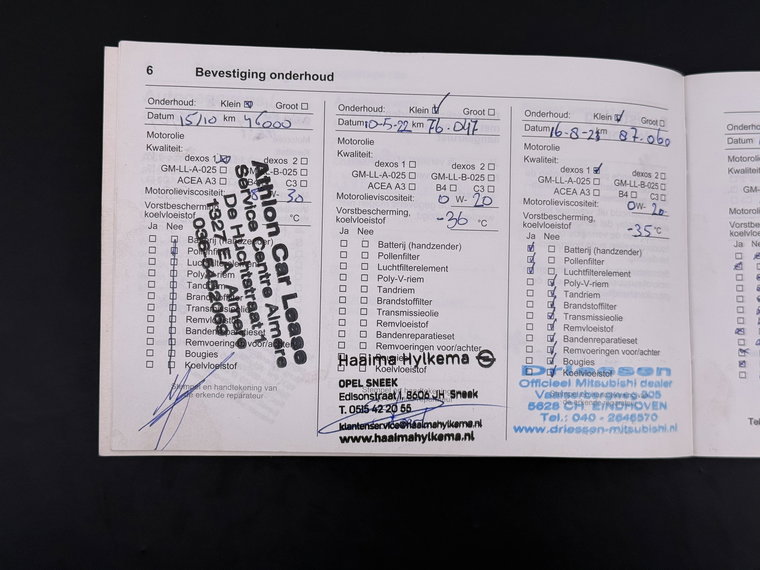 6 Bevestiging onderhoud
Onderhoud: Klein Groot
Datum 15/10 km 46000
Motorolie
Kwaliteit:
dexos 1 dexos 2
GM-LL-A-025 GM-LL-B-025
ACEA A3 C3
Motorolieviscositeit: W- 30
Vorstbescherming,
koelvloeistof °C
Ja Nee
Batterij (handzender)
Pollenfilter
Luchtfilterelement
Poly-V-riem
Tandriem
Brandstoffilter
Transmissieolie
Remvloeistof
Bandenreparatieset
Remvoeringen voor/achter
Bougies
Koelvloeistof
Stempel en handtekening van
de erkende reparateur
Athlon Car Lease
Service Centre Almere
De Huchtstraat
1327EA Almere
Onderhoud: Klein Groot
Datum 10-5-22 km 76.047
Motorolie
Kwaliteit:
dexos 1 dexos 2
GM-LL-A-025 GM-LL-B-025
ACEA A3 B4 C3
Motorolieviscositeit: 0 W- 20
Vorstbescherming,
koelvloeistof -36 °C
Ja Nee
Batterij (handzender)
Pollenfilter
Luchtfilterelement
Poly-V-riem
Tandriem
Brandstoffilter
Transmissieolie
Remvloeistof
Bandenreparatieset
Remvoeringen voor/achter
Haaima Hylkema
OPEL SNEEK
Edisonstraat 1, 8606 JH Sneek
T. 0515 42 20 55
klantenservice@haaimahylkema.nl
www.haaimahylkema.nl
Onderhoud: Klein Groot
Datum 16-8-23 km 87.060
Motorolie
Kwaliteit:
dexos 1 dexos 2
GM-LL-A-025 GM-LL-B-025
ACEA A3 B4 C3
Motorolieviscositeit: 0W- 20
Vorstbescherming,
koelvloeistof -35 °C
Ja Nee
Batterij (handzender)
Pollenfilter
Luchtfilterelement
Poly-V-riem
Tandriem
Brandstoffilter
Transmissieolie
Remvloeistof
Bandenreparatieset
Remvoeringen voor/achter
Bougies
Koelvloeistof
Driessen
Officieel Mitsubishi dealer
5628 CH EINDHOVEN
Tel.: 040 - 2646570
www.driessen-mitsubishi.nl
Datum
Ja Nee